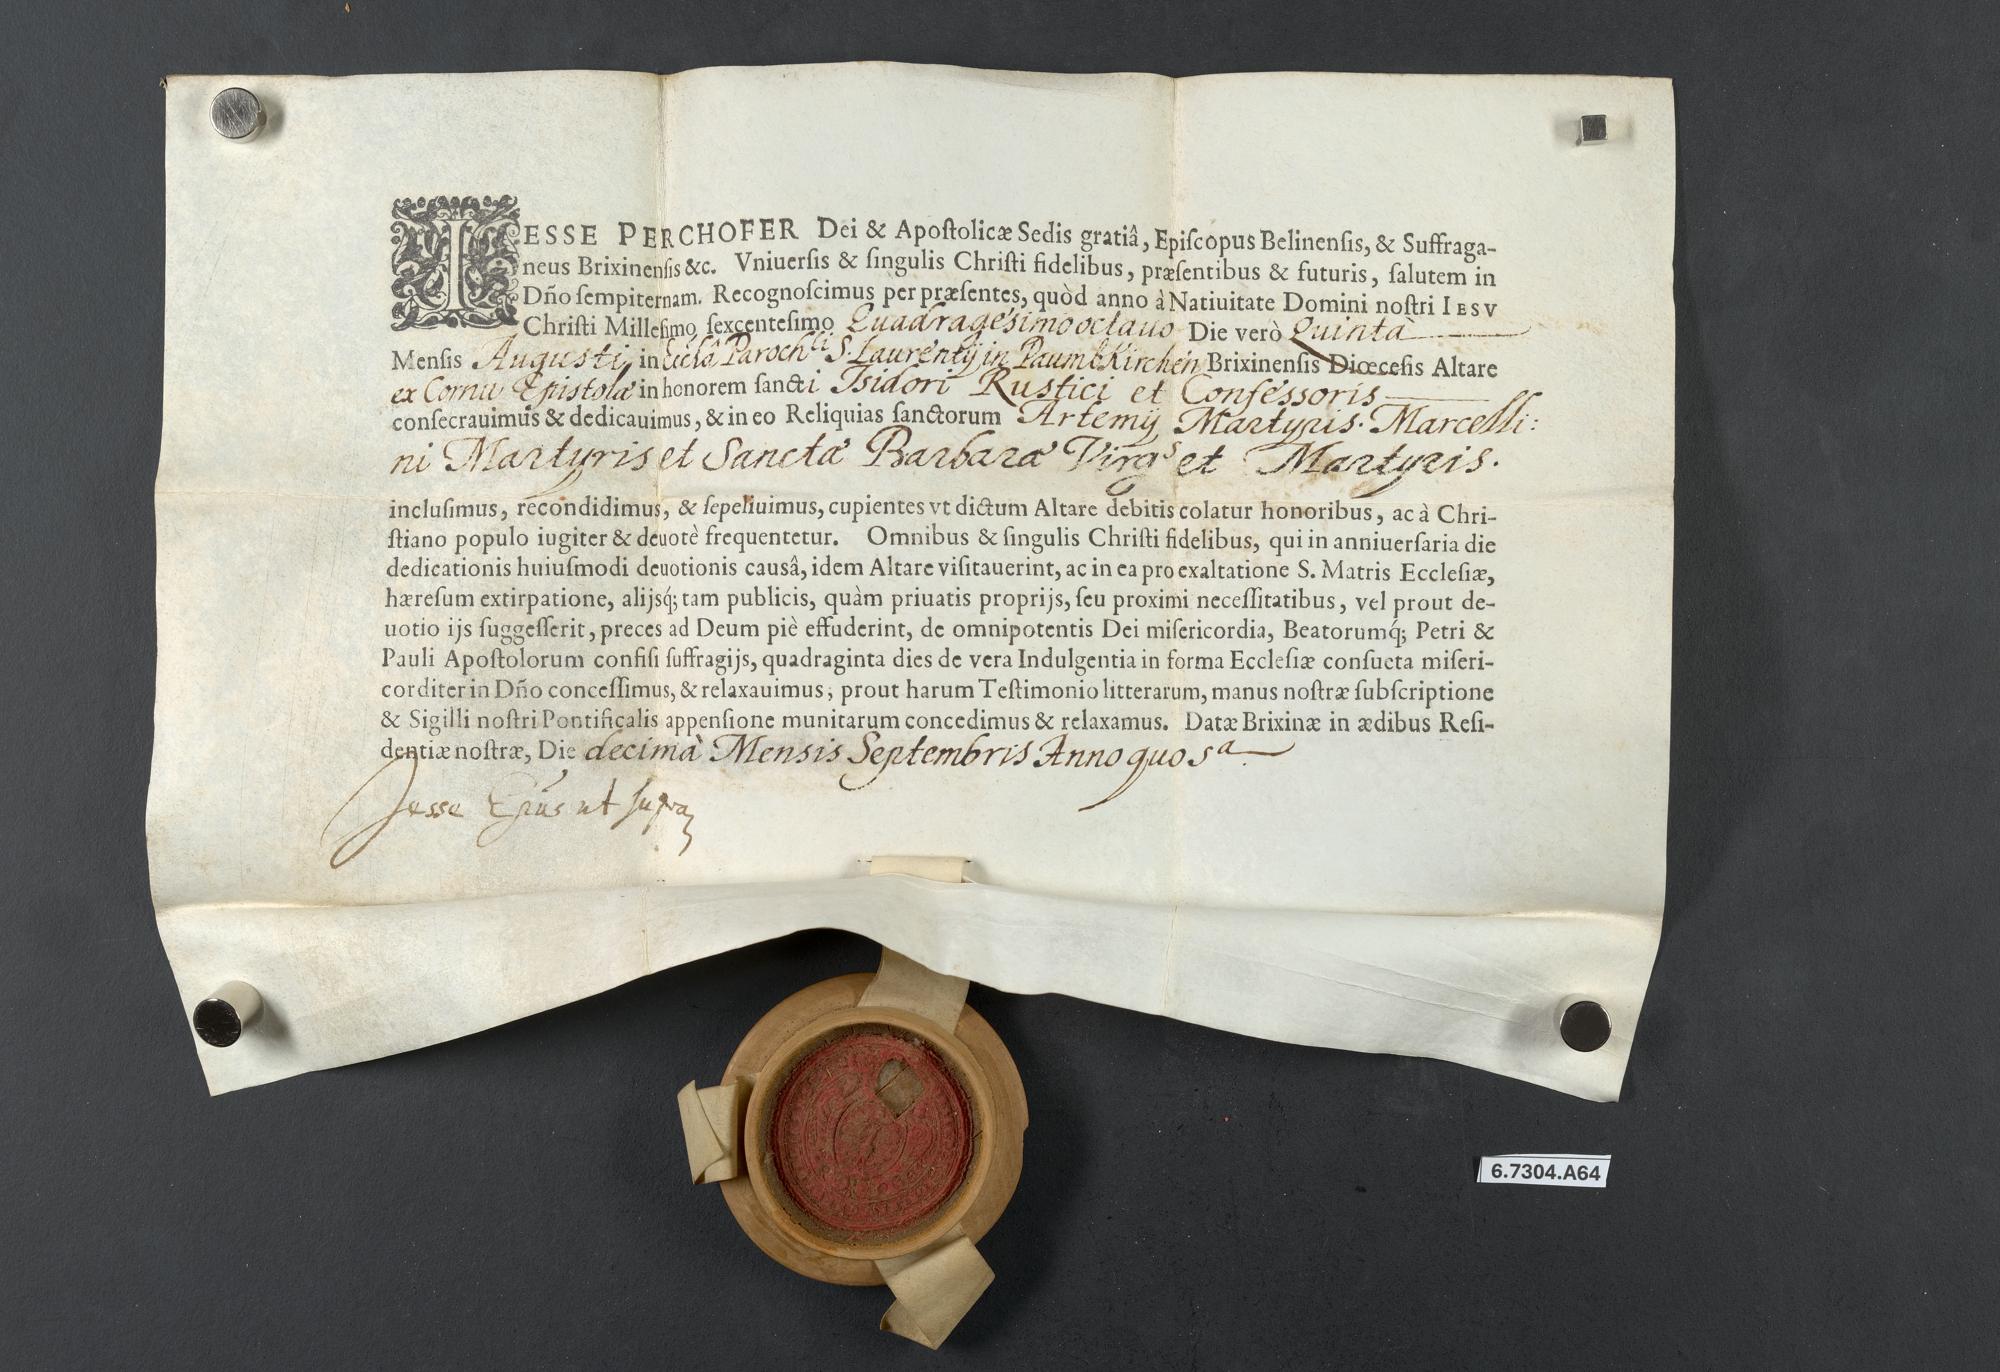 IESSE PERCHOFER Dei & Apostolicæ Sedis gratiâ, Episcopus Belinensis, & Suffraga-
neus Brixinensis &c. Vniuersis & singulis Christi fidelibus, præsentibus & futuris, salutem in
Dño sempiternam. Recognoscimus per præsentes, quòd anno à Natiuitate Domini nostri IESV
Christi Millesimo sexcentesimo Quadragesimo octauo Die verò Quinta
Mensis Augusti, in Ecclâ Parochli S. Laurentij in Paumbkirchen Brixinensis Diœcesis Altare
ex Cornu Epistolæ in honorem sancti Isidori Rustici et Confessoris
consecrauimus & dedicauimus, & in eo Reliquias sanctorum Artemij Martyris. Marcelli:
ni Martyris et Sanctæ Barbaræ Virgs et Martyris.
inclusimus, recondidimus, & sepeliuimus, cupientes vt dictum Altare debitis colatur honoribus, ac à Chri-
stiano populo iugiter & deuotè frequentetur. Omnibus & singulis Christi fidelibus, qui in anniuersaria die
dedicationis huiusmodi deuotionis causâ, idem Altare visitauerint, ac in ea pro exaltatione S. Matris Ecclesiæ,
hæresum extirpatione, alijsq́; tam publicis, quàm priuatis proprijs, seu proximi necessitatibus, vel prout de-
uotio ijs suggesserit, preces ad Deum piè effuderint, de omnipotentis Dei misericordia, Beatorumq́; Petri &
Pauli Apostolorum confisi suffragijs, quadraginta dies de vera Indulgentia in forma Ecclesiæ consueta miseri-
corditer in Dño concessimus, & relaxauimus; prout harum Testimonio litterarum, manus nostræ subscriptione
& Sigilli nostri Pontificalis appensione munitarum concedimus & relaxamus. Datæ Brixinæ in ædibus Resi-
dentiæ nostræ, Die decima Mensis Septembris Anno quo sa
Jesse Epũs ut supra
6.7304.A64